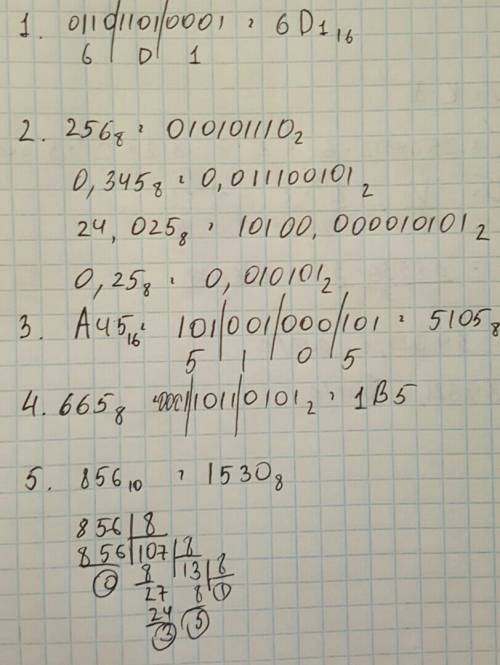 1. 0110|1101|0001 = 6D1₁₆
6 D 1
2. 256₈ = 010101110₂
0,345₈ = 0,011100101₂
24,025₈ = 10100,000010101₂
0,25₈ = 0,010101₂
3. A45₁₆ = 101|001|000|101 = 5105₈
5 1 0 5
4. 665₈ = 0001|1011|0101₂ = 1B5
5. 856₁₀ = 1530₈
856 8
856 107 8
0 8 13 8
27 8 1
24 5
3